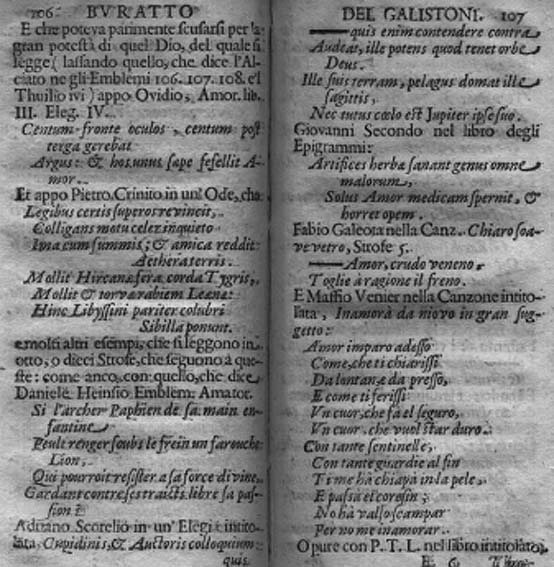 106. BVRATTO
E che poteva parimente scusarsi per la
gran potestà di quel Dio, del quale si
legge (lassando quello, che dice l'Al-
ciato ne gli Emblemi 106. 107. 108. e'l
Thuilio ivi) appo Ovidio, Amor. lib.
III. Eleg. IV.
Centum fronte oculos, centum post
terga gerebat
Argus: & hos unus sæpe fefellit A-
mor.
Et appo Pietro Crinito in un' Ode, che
Legibus certis superos revincit,
Colligans motu celer inquieto
Ima cum summis; & amica reddit
Aethera terris.
Mollit Hircanæ fera corda Tygris,
Mollit & torvæ rabiem Leænæ:
Hinc Libyssini pariter colubri
Sibilla ponunt.
e molti altri esempi, che si leggono in
otto, o dieci Strofe, che seguono a que-
ste: come anco con quello, che dice
Daniele Heinsio Emblem. Amator.
Si l'archer Paphien de sa main en-
fantine
Peult renger soubs le frein un farouche
Lion,
Qui pourroit resister a sa force divine,
Gardant contre ses traicts libre sa pas-
sion?
Adriano Scorelio in un' Elegia intito-
lata, Cupidinis, & Auctoris colloquium:
quis
DEL GALISTONI. 107
quis enim contendere contra
Audeat, ille potens quod tenet orbe
Deus.
Ille suis terram, pelagus domat ille
sagittis,
Nec tutus cœlo est Jupiter ipse suo.
Giovanni Secondo nel libro degli
Epigrammi:
Artifices herbæ sanant genus omne
malorum,
Solus Amor medicam spernit, &
horret opem.
Fabio Galeota nella Canz. Chiaro soa-
ve vetro, Strofe 5.
Amor, crudo veneno,
Toglie à ragione il freno.
E Maffio Venier nella Canzone intito-
lata, Inamorà da niovo in gran sug-
getto:
Amor imparo adesso
Come, che ti chiarissi
Da lontan, e da presso,
E come ti ferissi
Vn cuor, che fa el seguro,
Vn cuor, che vuol star duro.
Con tante sentinelle,
Con tante guardie al fin
Ti me hà chiapà in la pele,
E passà el coresin;
No hà valso scampar
Per no me inamorar.
Opure con P. T. L. nel libro intitolato,
E 6